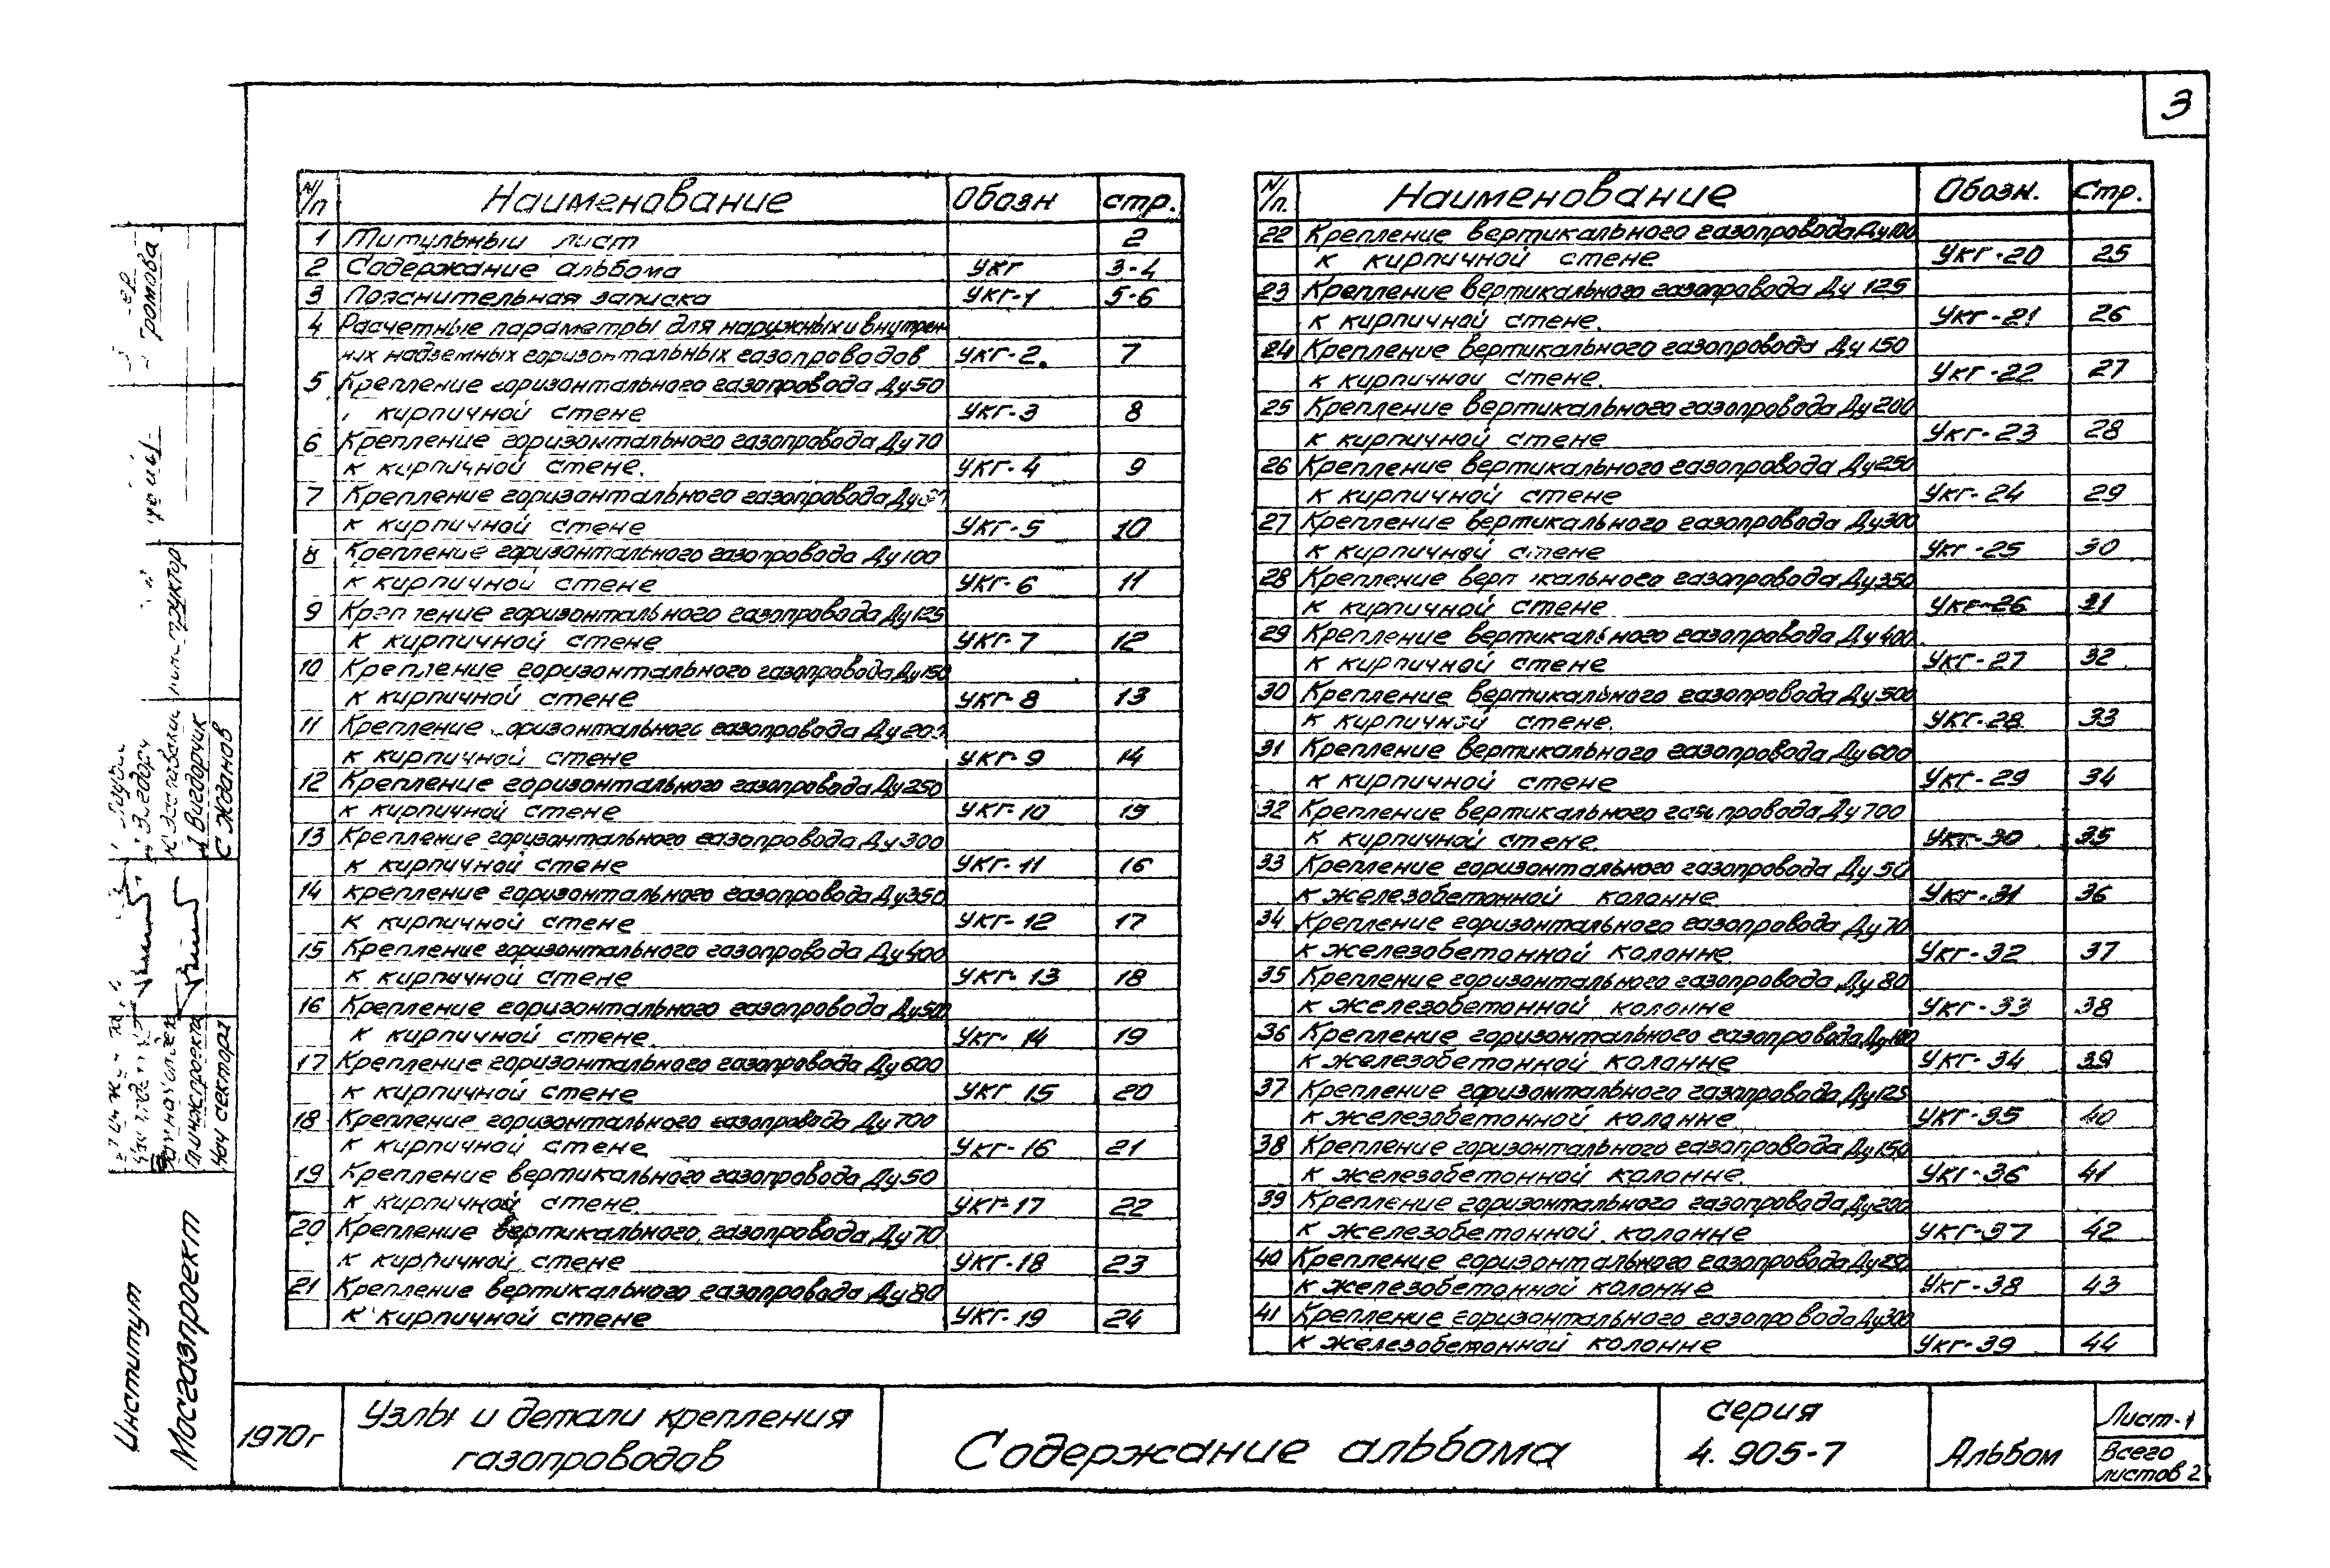 3
N/п Наименование Обозн стр.
1 Титульный лист 2
2 Содержание альбома УКГ 3-4
3 Пояснительная записка УКГ-1 5-6
4 Расчетные параметры для наружных и внутрен-
них надземных горизонтальных газопроводов УКГ-2. 7
5 Крепление горизонтального газопровода Ду50
кирпичной стене УКГ-3 8
6 Крепление горизонтального газопровода Ду70
к кирпичной стене. УКГ-4 9
7 Крепление горизонтального газопровода
к кирпичной стене УКГ-5 10
8 Крепление горизонтального газопровода Ду100
к кирпичной стене УКГ-6 11
9 Крепление горизонтального газопровода Ду125
к кирпичной стене УКГ-7 12
10 Крепление горизонтального газопровода Ду150
к кирпичной стене УКГ-8 13
11 Крепление горизонтального газопровода Ду200
к кирпичной стене УКГ-9 14
12 Крепление горизонтального газопровода Ду250
к кирпичной стене УКГ-10 15
13 Крепление горизонтального газопровода Ду300
к кирпичной стене УКГ-11 16
14 крепление горизонтального газопровода Ду350
к кирпичной стене УКГ-12 17
15 Крепление горизонтального газопровода Ду400
к кирпичной стене УКГ-13 18
16 Крепление горизонтального газопровода Ду500
к кирпичной стене. УКГ-14 19
17 Крепление горизонтального газопровода Ду600
к кирпичной стене УКГ 15 20
18 Крепление горизонтального газопровода Ду700
к кирпичной стене УКГ-16 21
19 Крепление вертикального газопровода Ду50
к кирпичной стене. УКГ-17 22
20 Крепление вертикального газопровода Ду70
к кирпичной стене УКГ-18 23
21 Крепление вертикального газопровода Ду80
к кирпичной стене УКГ-19 24
N/п. Наименование Обозн. Стр.
22 Крепление вертикального газопровода Ду100
к кирпичной стене УКГ-20 25
23 Крепление вертикального газопровода Ду 125
к кирпичной стене. УКГ-21 26
24 Крепление вертикального газопровода Ду 150
к кирпичной стене. УКГ-22 27
25 Крепление вертикального газопровода Ду200
к кирпичной стене УКГ-23 28
26 Крепление вертикального газопровода Ду250
к кирпичной стене УКГ-24 29
27 Крепление вертикального газопровода Ду300
к кирпичной стене УКГ-25 30
28 Крепление вертикального газопровода Ду350
к кирпичной стене УКГ-26 31
29 Крепление вертикального газопровода Ду400
к кирпичной стене УКГ-27 32
30 Крепление вертикального газопровода Ду500
к кирпичной стене. УКГ-28 33
31 Крепление вертикального газопровода Ду600
к кирпичной стене УКГ-29 34
32 Крепление вертикального газопровода Ду700
к кирпичной стене. УКГ-30 35
33 Крепление горизонтального газопровода Ду50
к железобетонной колонне УКГ-31 36
34 Крепление горизонтального газопровода Ду70
к железобетонной колонне УКГ-32 37
35 Крепление горизонтального газопровода Ду80
к железобетонной колонне УКГ-33 38
36 Крепление горизонтального газопровода Ду100
к железобетонной колонне УКГ-34 39
37 Крепление горизонтального газопровода Ду125
к железобетонной колонне УКГ-35 40
38 Крепление горизонтального газопровода Ду150
к железобетонной колонне. УКГ-36 41
39 Крепление горизонтального газопровода Ду200
к железобетонной колонне УКГ-37 42
40 Крепление горизонтального газопровода Ду250
к железобетонной колонне УКГ-38 43
41 Крепление горизонтального газопровода Ду300
к железобетонной колонне УКГ-39 44
Громова
С Жданов
Д Выгодчик
Гл.инж.проекта
Нач сектора
Институт
Мосгазпроект
1970г
Узлы и детали крепления
газопроводов
Содержание альбома
серия
4. 905-7
Альбом
Лист-1
Всего
листов 2